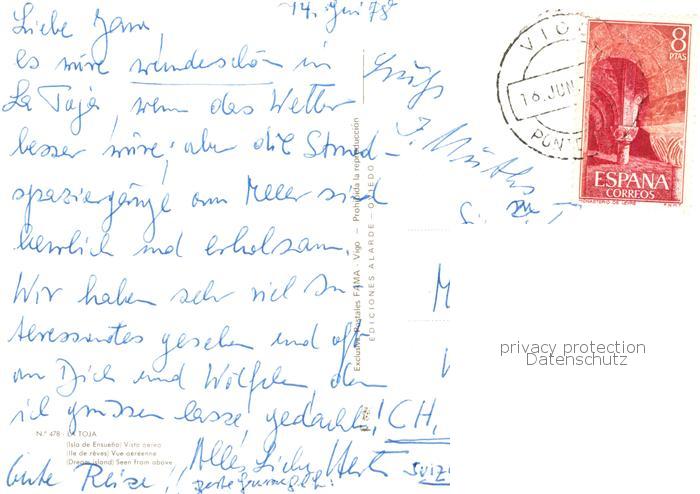 14. Juni 78
Liebe
es wäre wunderschön in
La Toja, wenn das Wetter
besser wäre; aber die Strand-
spaziergänge am Meer sind
herrlich und erholsam.
Wir haben sehr viel In
teressantes gesehen und oft
an Dich und Wölfchen, den
ich grüssen lasse, gedacht!
Alles Liebe
Gute Reise!
CH,
VIGO
16. JUN.
8
PTAS
ESPAÑA
CORREOS
MONASTERIO DE LEYRE
F.N.M.T.
privacy protection
Datenschutz
N.º 478 - LA TOJA
(Isla de Ensueño) Vista aérea
(Ile de rêves) Vue aérienne
(Dream island) Seen from above
Exclusiva Postales FAMA - Vigo — Prohibida la reproducción
EDICIONES ALARDE — OVIEDO